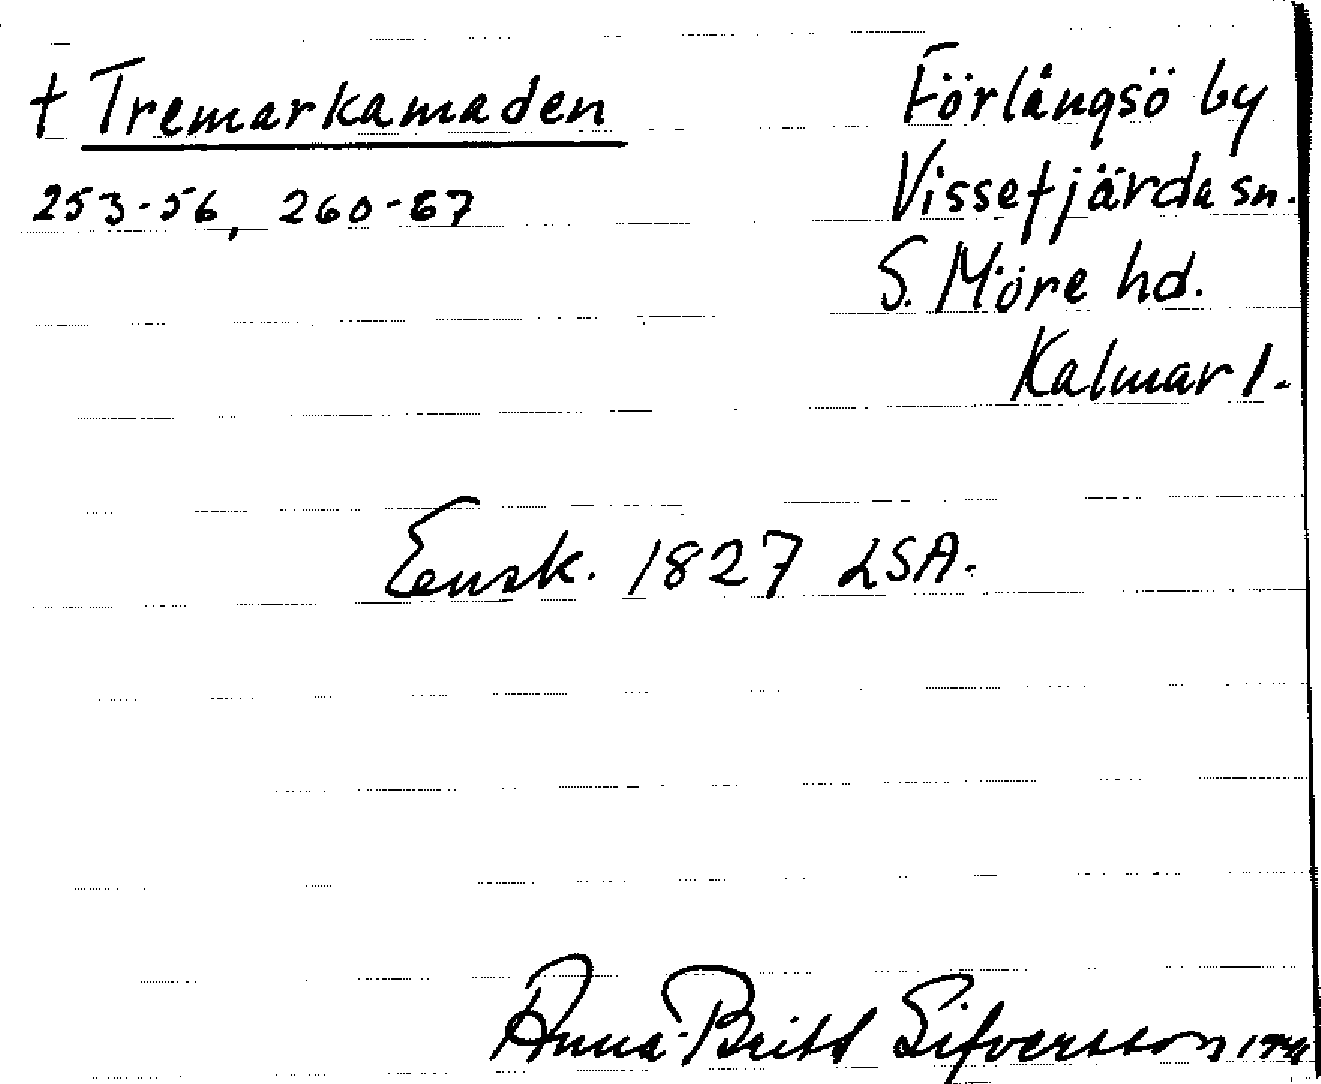 † Tremarkamaden
253-56, 260-67
Förlångsö by
Vissefjärda sn.
S. Möre hd.
Kalmar l.
Ensk. 1827 LSA.
Anna-Britt Sifversson